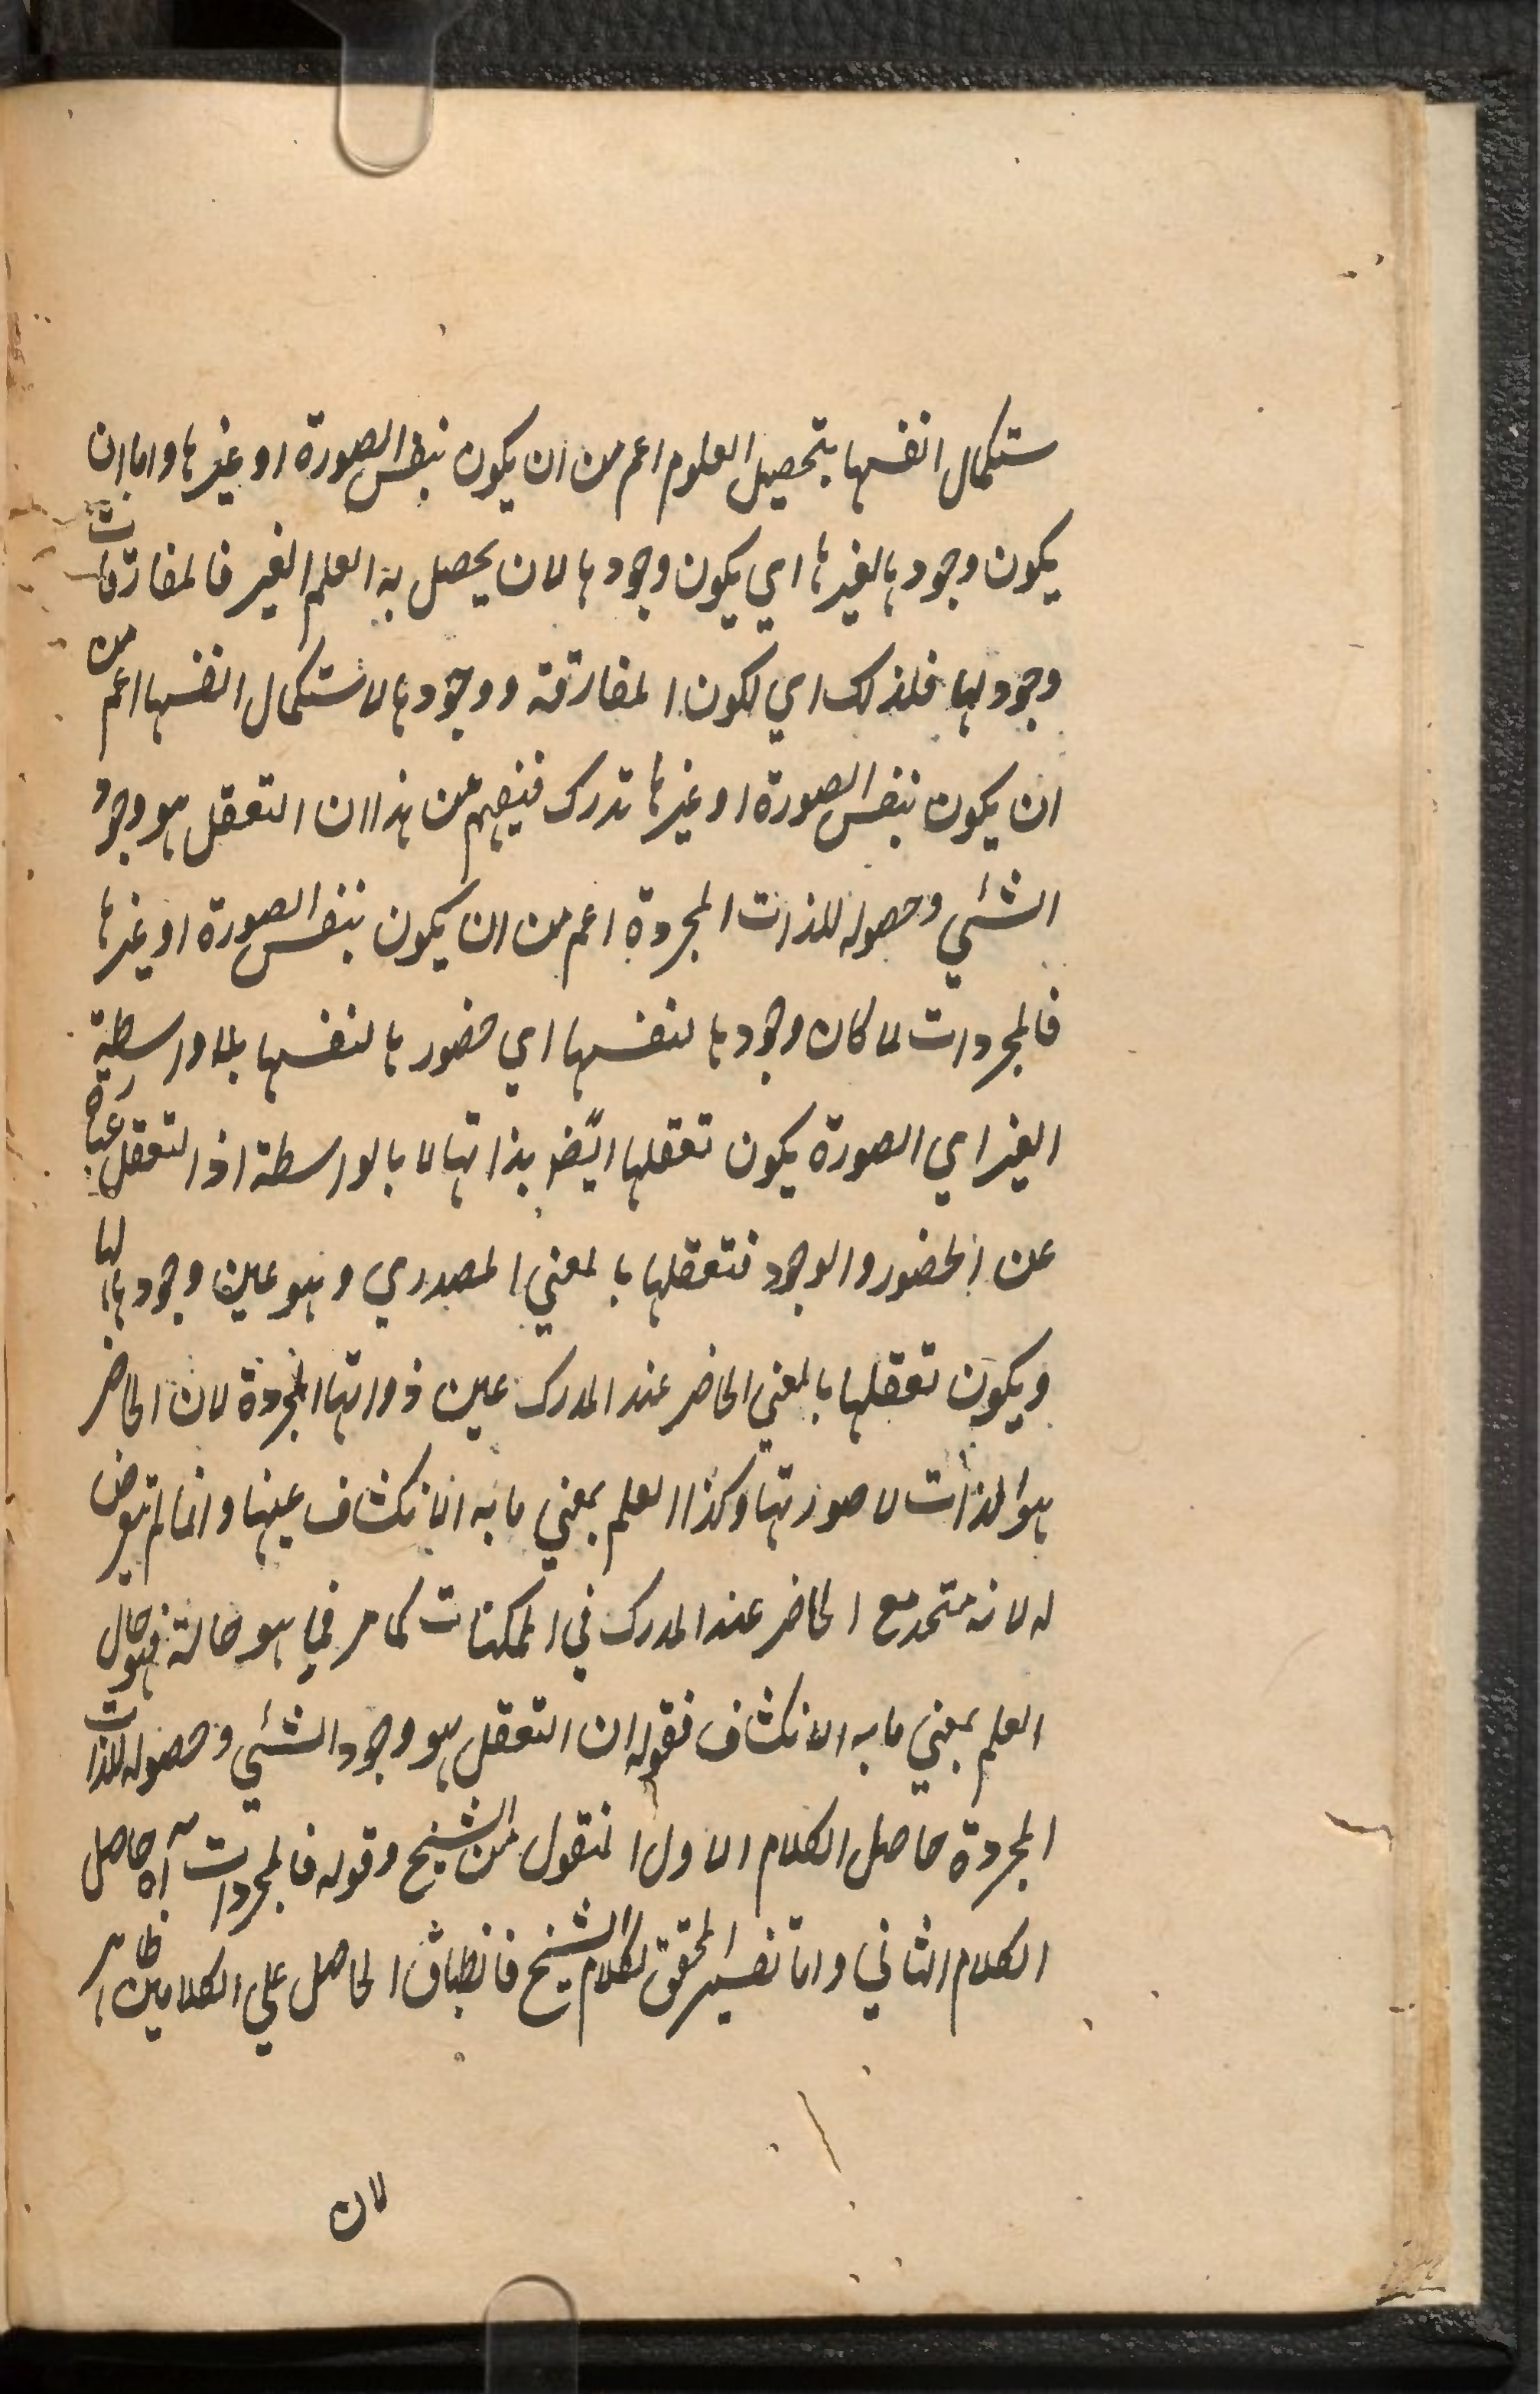 ستكمال انفسها بتحصيل العلوم اعم من ان يكون بنفس الصورة او غيرها واما ان
يكون وجودها لغيرها اي يكون وجودها لان يحصل به العلم الغير فالمفارقات
وجود لها فلذلك اي لكون المفارقة ووجودها لاستكمال انفسها اعم من
ان يكون بنفس الصورة او غيرها تدرك فيفهم من هذا ان التعقل هو وجود
الشئي وحصوله للذات المجردة اعم من ان يكون بنفس الصورة او غيرها
فالمجردات لما كان وجودها لنفسها اي حضورها لنفسها بلا واسطية
الغير اي الصورة يكون تعقلها ايضا بذاتها لا بالواسطة اذ التعقل عبارة
عن الحضور والوجود فتعقلها بالمعني المصدري وهو عين وجودها لها
ويكون تعقلها بالمعني الحاضر عند المدرك عين ذواتها المجردة لان الحاضر
هو الذات لا صورتها وكذا العلم بمعني ما به الانكشاف عينها وانما لم يتعرض
له لانه متحد مع الحاضر عند المدرك في الممكنات كما مر فما هو حالته فهو حال
العلم بمعني ما به الانكشاف فقوله ان التعقل هو وجود الشئي وحصوله للذات
المجردة حاصل الكلام الاول المنقول من الشيخ وقوله فالمجردات آه حاصل
الكلام الثاني واما تفسير المحقق لكلام الشيخ فانطباق الحاصل علي الكلامين ظاهر
لان